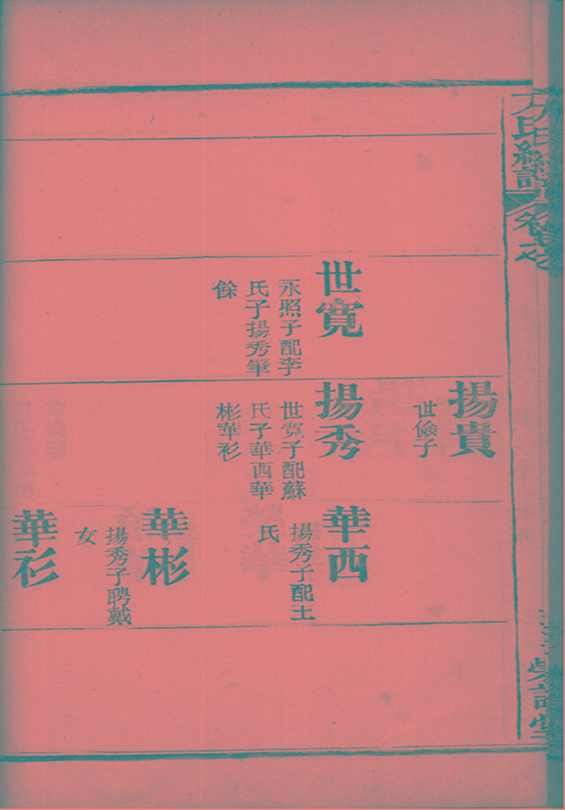 方氏總譜
揚貴
世儉子
世寬
永照子配李
氏子揚秀肇
餘
揚秀
世寬子配蘇
氏子華西華
彬華衫
華西
揚秀子配土
氏
華彬
揚秀子聘戴
女
華衫